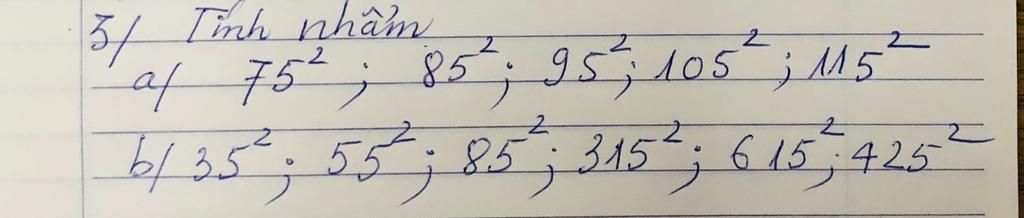 3/ Tính nhẩm
a/ 75² ; 85² ; 95² ; 105² ; 115²
b/ 35² ; 55² ; 85² ; 315² ; 615² ; 425²